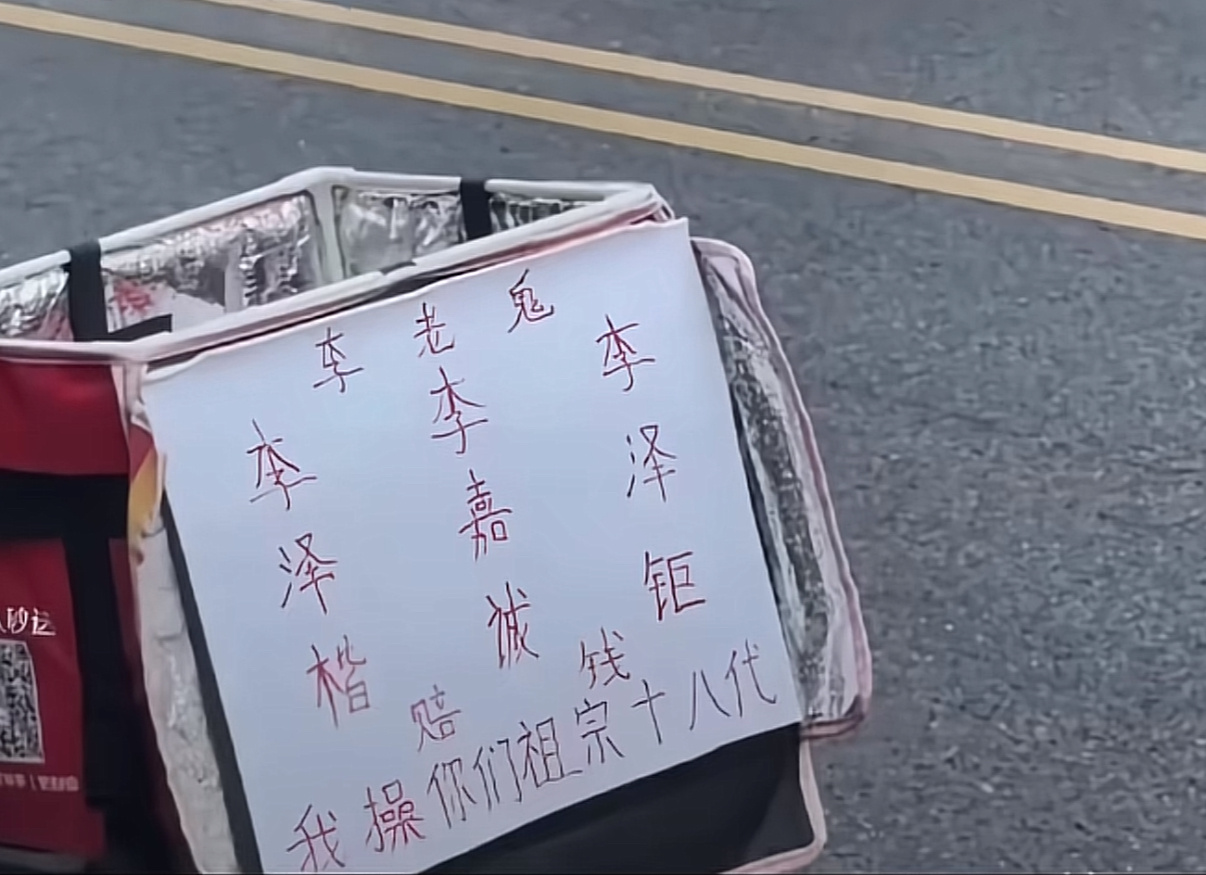 李老鬼
李泽楷
李嘉诚
李泽钜
赔钱
我操你们祖宗十八代